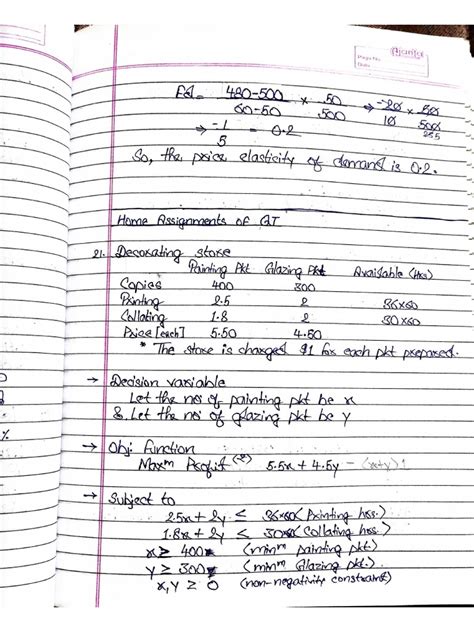 Ajanta
Page No.
Date
Pd = 480-500 / 60-50 × 50 / 500 ⇒ -20 / 10 × 50 / 500
⇒ -1 / 5 = 0.2
So, the price elasticity of demand is 0.2.
Home Assignments of QT
21. Decorating store
Painting Pkt Glazing Pkt Available (Hrs)
Copies 400 300
Printing 2.5 2 36×60
Collating 1.8 2 30×60
Price [each] 5.50 4.50
* The store is charged $1 for each pkt prepared.
→ Decision variable
Let the no. of painting pkt be x
& Let the no. of glazing pkt be y
→ Obj. function
Maxm Profit (z) 5.5x + 4.5y - (x+y)1
→ Subject to
2.5x + 2y ≤ 36×60 (Printing hrs.)
1.8x + 2y ≤ 30×60 (Collating hrs.)
x ≥ 400 (minm painting pkt.)
y ≥ 300 (minm Glazing pkt.)
x, y ≥ 0 (non-negativity constraint)